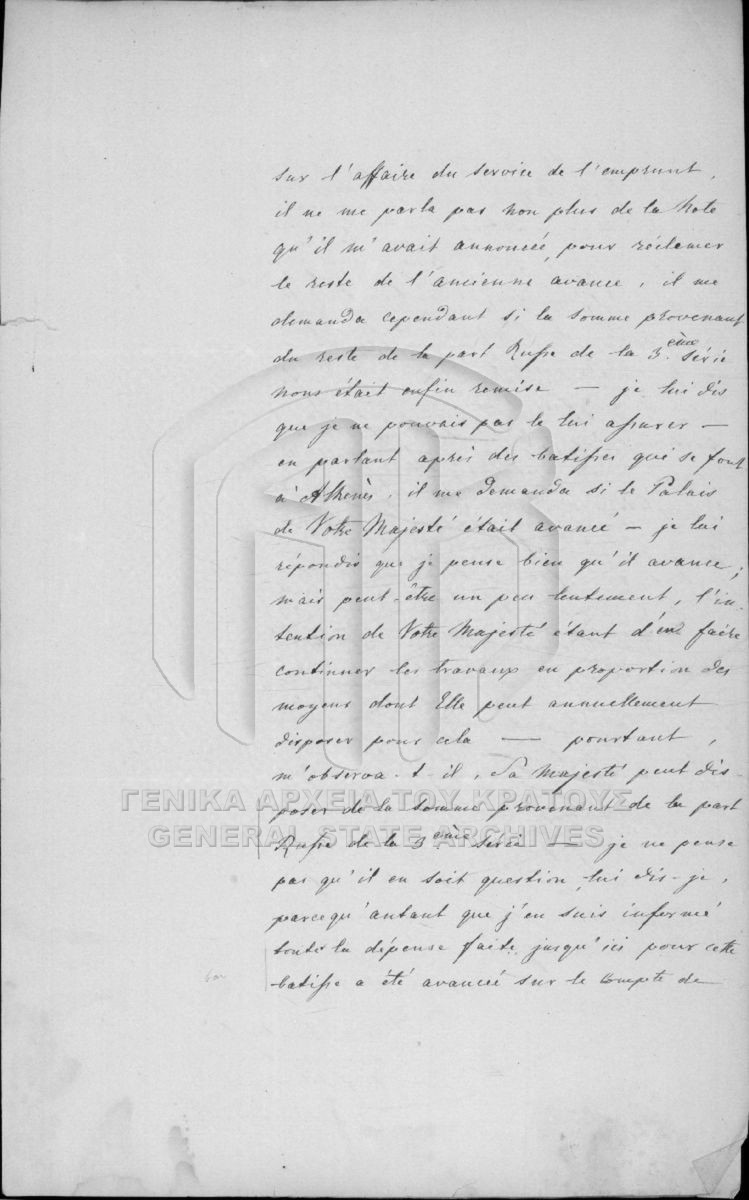 sur l'affaire du service de l'emprunt,
il ne me parla pas non plus de la Note
qu'il m'avait annoncée, pour réclamer
le reste de l'ancienne avance, il me
demanda cependant si la somme provenant
du reste de la part Russe de la 3.ème série
nous était enfin remise — je lui dis
que je ne pouvais pas le lui assurer —
en parlant après des batisses qui se font
à Athenès, il me demanda si le Palais
de Votre Majesté était avancé — je lui
répondis que je pense bien qu'il avance;
mais peut-être un peu lentement, l'in-
tention de Votre Majesté étant d'en faire
continuer les travaux en proportion des
moyens dont Elle peut annuellement
disposer pour cela — pourtant,
m'observa-t-il, Sa Majesté peut dis-
poser de la somme provenant de la part
ΓΕΝΙΚΑ ΑΡΧΕΙΑ ΤΟΥ ΚΡΑΤΟΥΣ
GENERAL STATE ARCHIVES
Russe de la 3.ème série — je ne pense
pas qu'il en soit question, lui dis-je,
parcequ'autant que j'en suis informé
toute la dépense faite jusqu'ici pour cette
batisse a été avancée sur le compte de